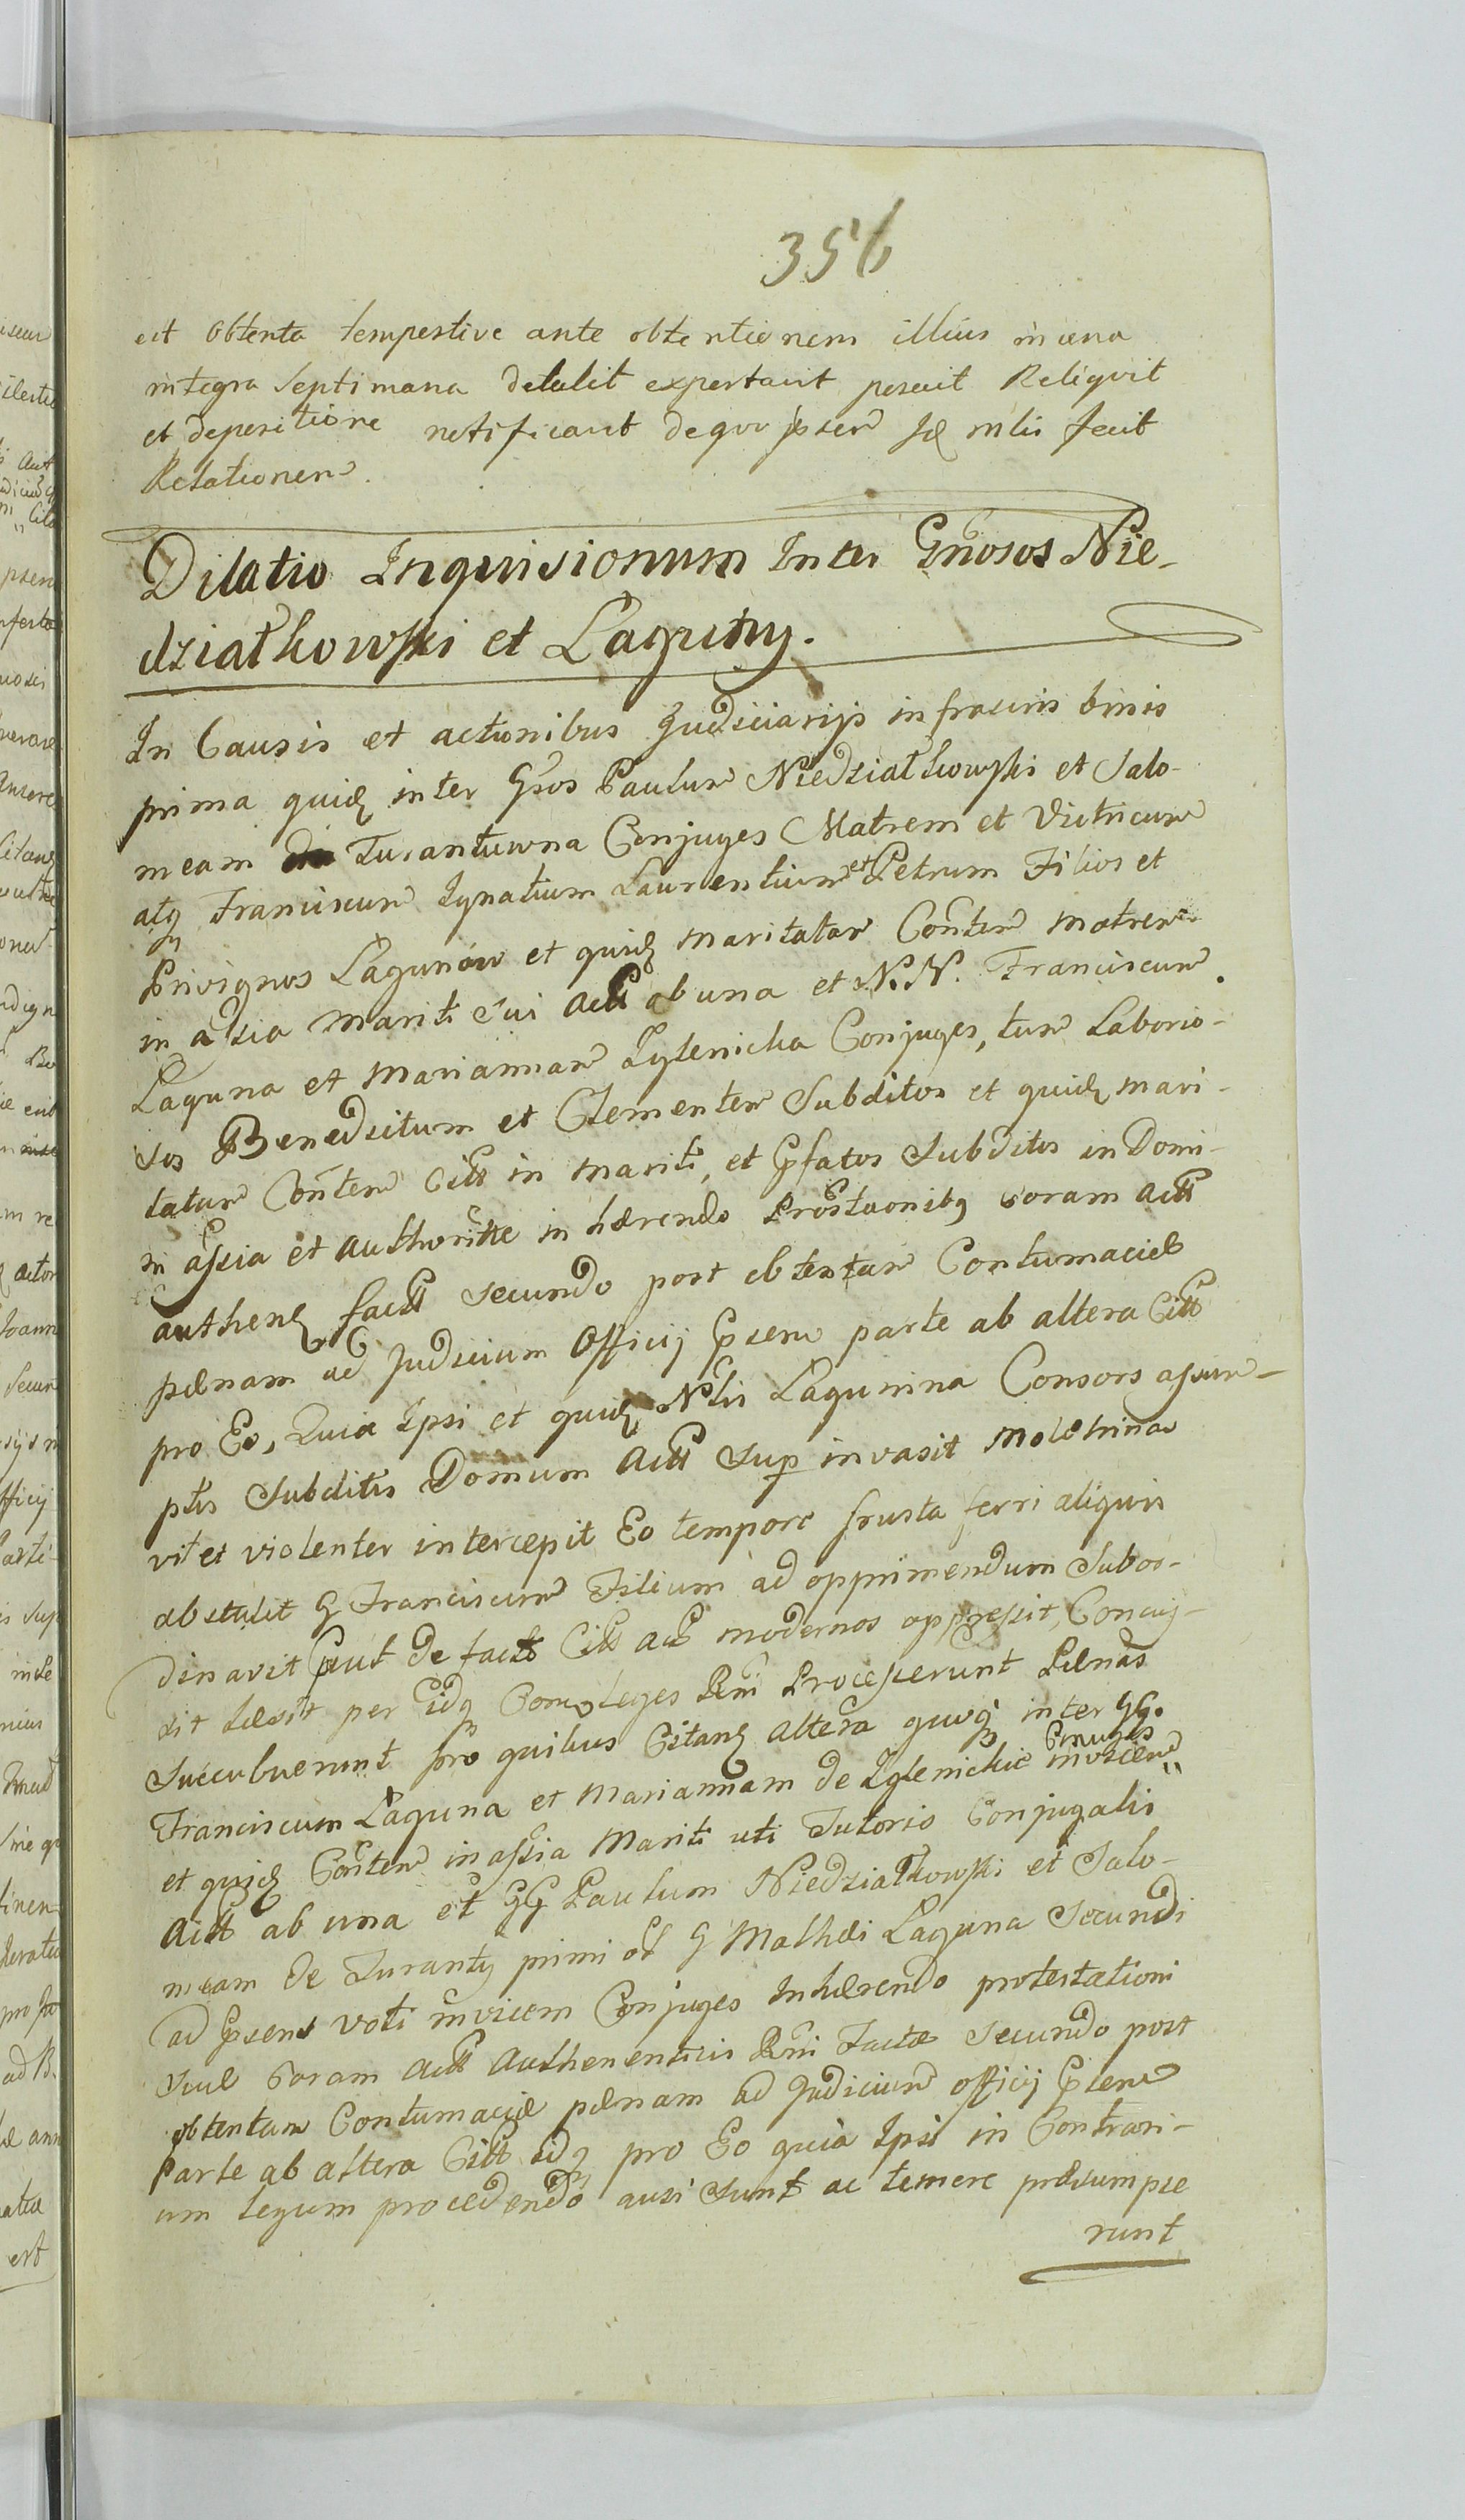 356
est obtenta tempestive ante obtentionem illius in cena
integra septimana detulit expectavit posuit Reliquit
et depositione notificavit dequo psen Jud mlis fecit
Relationem.
Dilatio Inquisitionum Inter Gnosos Nie-
dziatkowski et Laguny.
In Causis et actionibus Judiciarijs infrascris binis
prima quid inter Gsos Paulum Niedziatkowski et Salo-
meam Turantuwna Conjuges Matrem et Vitricum
atq Franciscum Ignatium Laurentium et Petrum Filios et
Privignos Lagunow et quid maritatam Contem matrem
in assia mariti sui Act ab una et N.N. Franciscum
Laguna et Mariannam Zglenicka Conjuges, tum Laborio-
sos Benedictum et Clementem Subditos et quid mari-
tatam Contem Citt in mariti, et Pfatos Subditos in Domi-
ni assia et Authoritte in hærendo Prostaonibq coram Actt
authend factt secundo post obtentam Contumaciæ
pænam ad Judicium Officij Psens parte ab altera Citt
pro Eo, Quia Ipsi et quid Nlis Lagunina Consors assum-
ptis Subditis Domum Actt Sup invasit Molestina
vit et violenter intercepit Eo tempore frusta ferri aliquis
abstulit G Franciscum Filium ad opprimendum Subor-
dinavit Put de facto Citt Act modernos oppressit, Concuj-
sit Læsit per idq Com leges Rni Processerunt Pænas
succubuerunt pro quibus Citand altera quoq inter GG.
Franciscum Laguna et Mariannam de Zglenickie Conuges invicem
et quid Contem in assia Mariti uti Tutoris Conjugalis
Actt ab una et GG Paulum Niedziatkowski et Salo-
meam de Turanty primi ol G Mathei Laguna Secundi
ad Psens voti invicem Conjuges Inhærendo protestationi
suæ Coram Actt Authenenticis Rni Factæ Secundo post
obtentam Contumaciæ pænam ad Judicium officij Psens
Parte ab altera Citt idq pro Eo quia Ipsi in Contrari-
um legum procedendo ausi sunt ac temere præsumpse
runt